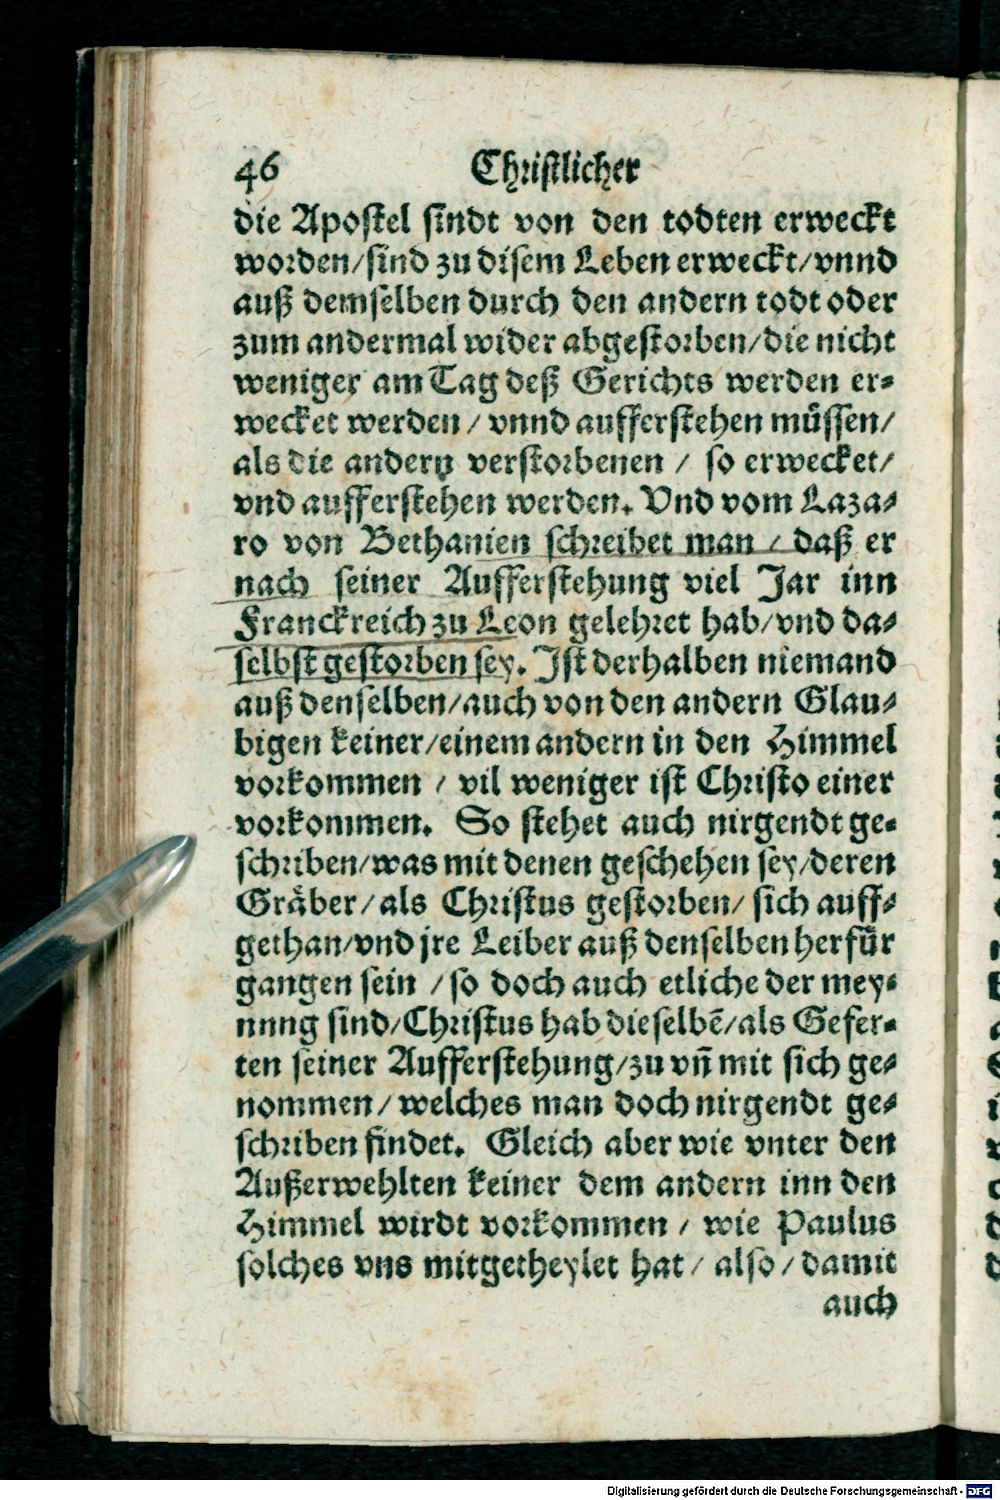 46 Christlicher
die Apostel sindt von den todten erweckt
worden/sind zu disem Leben erweckt/vnnd
auß demselben durch den andern todt oder
zum andermal wider abgestorben/die nicht
weniger am Tag deß Gerichts werden er⸗
wecket werden / vnnd aufferstehen müssen/
als die andern verstorbenen / so erwecket/
vnd aufferstehen werden. Vnd vom Laza⸗
ro von Bethanien schreibet man / daß er
nach seiner Aufferstehung viel Jar inn
Franckreich zu Leon gelehret hab/vnd da⸗
selbst gestorben sey. Ist derhalben niemand
auß denselben/auch von den andern Glau⸗
bigen keiner/einem andern in den Himmel
vorkommen / vil weniger ist Christo einer
vorkommen. So stehet auch nirgendt ge⸗
schriben/was mit denen geschehen sey/deren
Gräber/als Christus gestorben/ sich auff⸗
gethan/vnd jre Leiber auß denselben herfür
gangen sein /so doch auch etliche der mey⸗
nung sind/Christus hab dieselbē/als Gefer⸗
ten seiner Aufferstehung/zu vn̄ mit sich ge⸗
nommen/welches man doch nirgendt ge⸗
schriben findet. Gleich aber wie vnter den
Außerwehlten keiner dem andern inn den
Himmel wirdt vorkommen / wie Paulus
solches vns mitgetheylet hat/ also/damit
auch
Digitalisierung gefördert durch die Deutsche Forschungsgemeinschaft - DFG